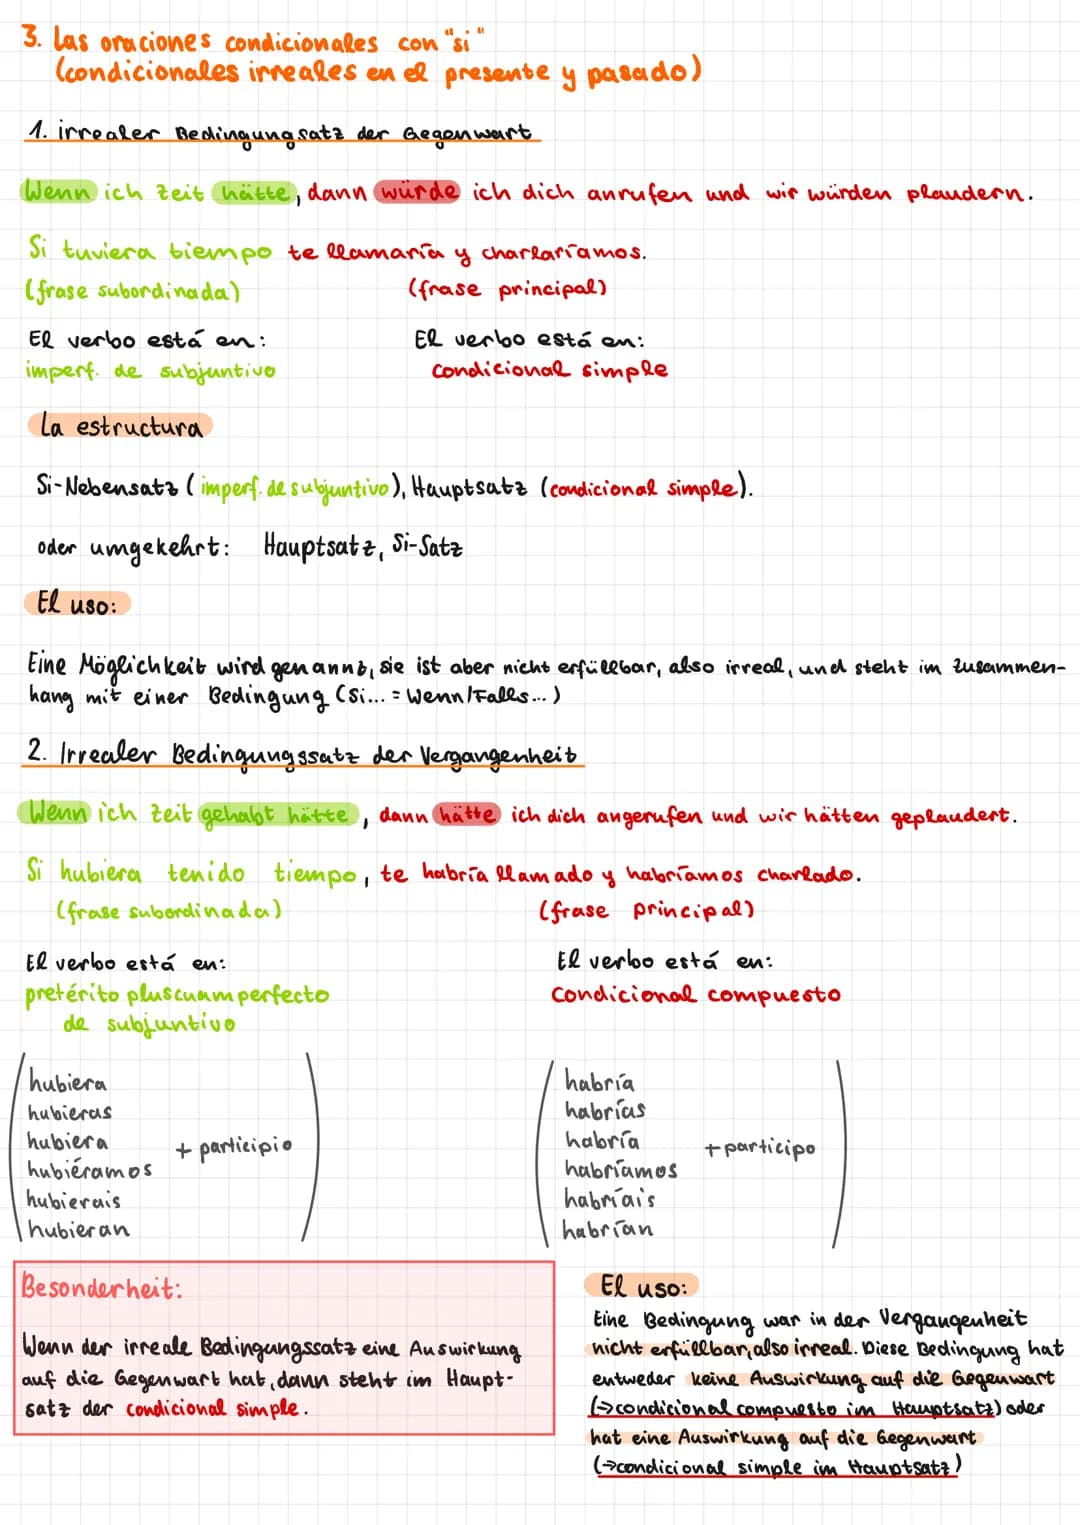 3. Las oraciones condicionales con "si"
(condicionales irreales en el presente y pasado)
1. irrealer Bedingungsatz der Gegenwart
Wenn ich Zeit hätte, dann würde ich dich anrufen und wir würden plaudern.
Si tuviera tiempo te llamaría y charlaríamos.
(frase subordinada) (frase principal)
El verbo está en: El verbo está en:
imperf. de subjuntivo condicional simple
La estructura
Si-Nebensatz (imperf. de subjuntivo), Hauptsatz (condicional simple).
oder umgekehrt: Hauptsatz, Si-Satz
El uso:
Eine Möglichkeit wird genannt, sie ist aber nicht erfüllbar, also irreal, und steht im Zusammen-
hang mit einer Bedingung (Si... = Wenn/Falls...)
2. Irrealer Bedingungssatz der Vergangenheit
Wenn ich Zeit gehabt hätte, dann hätte ich dich angerufen und wir hätten geplaudert.
Si hubiera tenido tiempo, te habría llamado y habríamos charlado.
(frase subordinada) (frase principal)
El verbo está en: El verbo está en:
pretérito pluscuamperfecto condicional compuesto
de subjuntivo
hubiera
hubieras
hubiera
+ participio
hubiéramos
hubierais
hubieran
habría
habrías
habría
+ participo
habríamos
habríais
habrían
Besonderheit:
Wenn der irreale Bedingungssatz eine Auswirkung
auf die Gegenwart hat, dann steht im Haupt-
satz der condicional simple.
El uso:
Eine Bedingung war in der Vergangenheit
nicht erfüllbar, also irreal. Diese Bedingung hat
entweder keine Auswirkung auf die Gegenwart
(→condicional compuesto im Hauptsatz) oder
hat eine Auswirkung auf die Gegenwart
(→condicional simple im Hauptsatz)